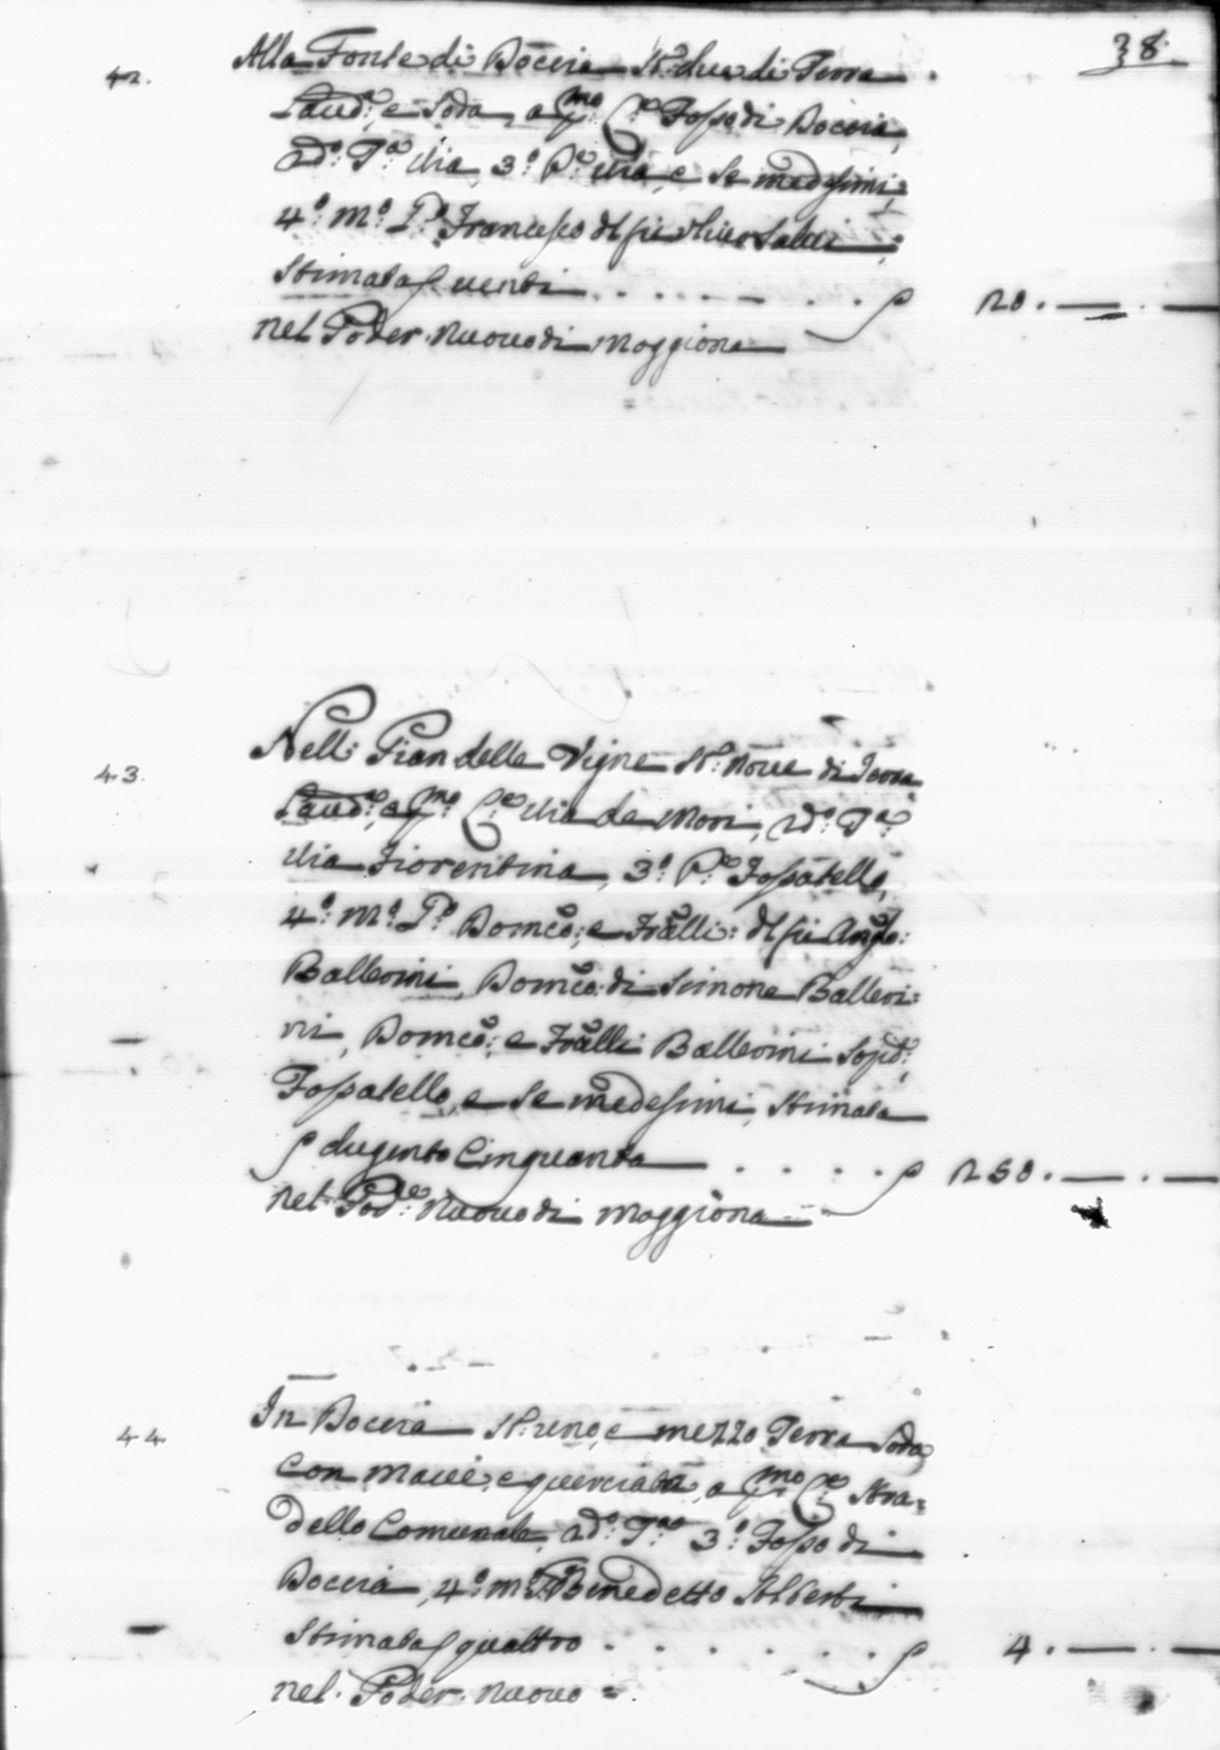 38.
42. Alla Fonte di Docciа St.ª due di Terra
Laud.ª, e Soda, a p.mo C.º Fosso di Doccia,
2d.º T.ª Via, 3.º P.º Via, e Se medesimi,
4.º M.º P.º Francesco del fu Oliver Salvi
Stimata ſ venti . . . . . . . ſ 20. — . —
nel Poder. Nuovo di Moggiona
43. Nell: Pian delle Vigne St.ª nove di Terra
Laud.ª, a p.mo C.º Via de Mori, 2d.º T.ª
Via Fiorentina, 3.º P.º Fossatello,
4.º M.º P.º Domco:, e Fratlli: del fu Anglo:
Ballerini, Domco: di Simone Balleri=
ni, Domco:, e Fratlli Ballerini Sopd:,
Fossatello, e Se medesimi, Stimata
ſ dugento Cinquanta . . . . ſ 250. — . —
nel Pod.e Nuovo di Moggiona
44. In Doccia St.ª uno, e mezzo Terra Soda
Con Macie, e querciata, a p.mo C.º Stra=
dello Comunale, 2d.º T.º 3.º Fosso di
Doccia, 4.º M.º P.º Benedetto Alberti
Stimata ſ quattro . . . . . . ſ 4. — . —
nel. Poder. Nuovo =.